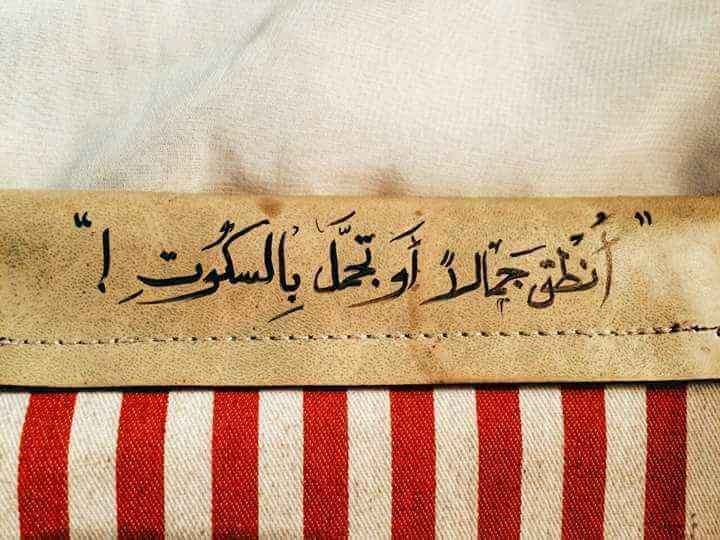 "أُنْطق جَمالاً أَو تجمَّل بِالسكُوتِ !"